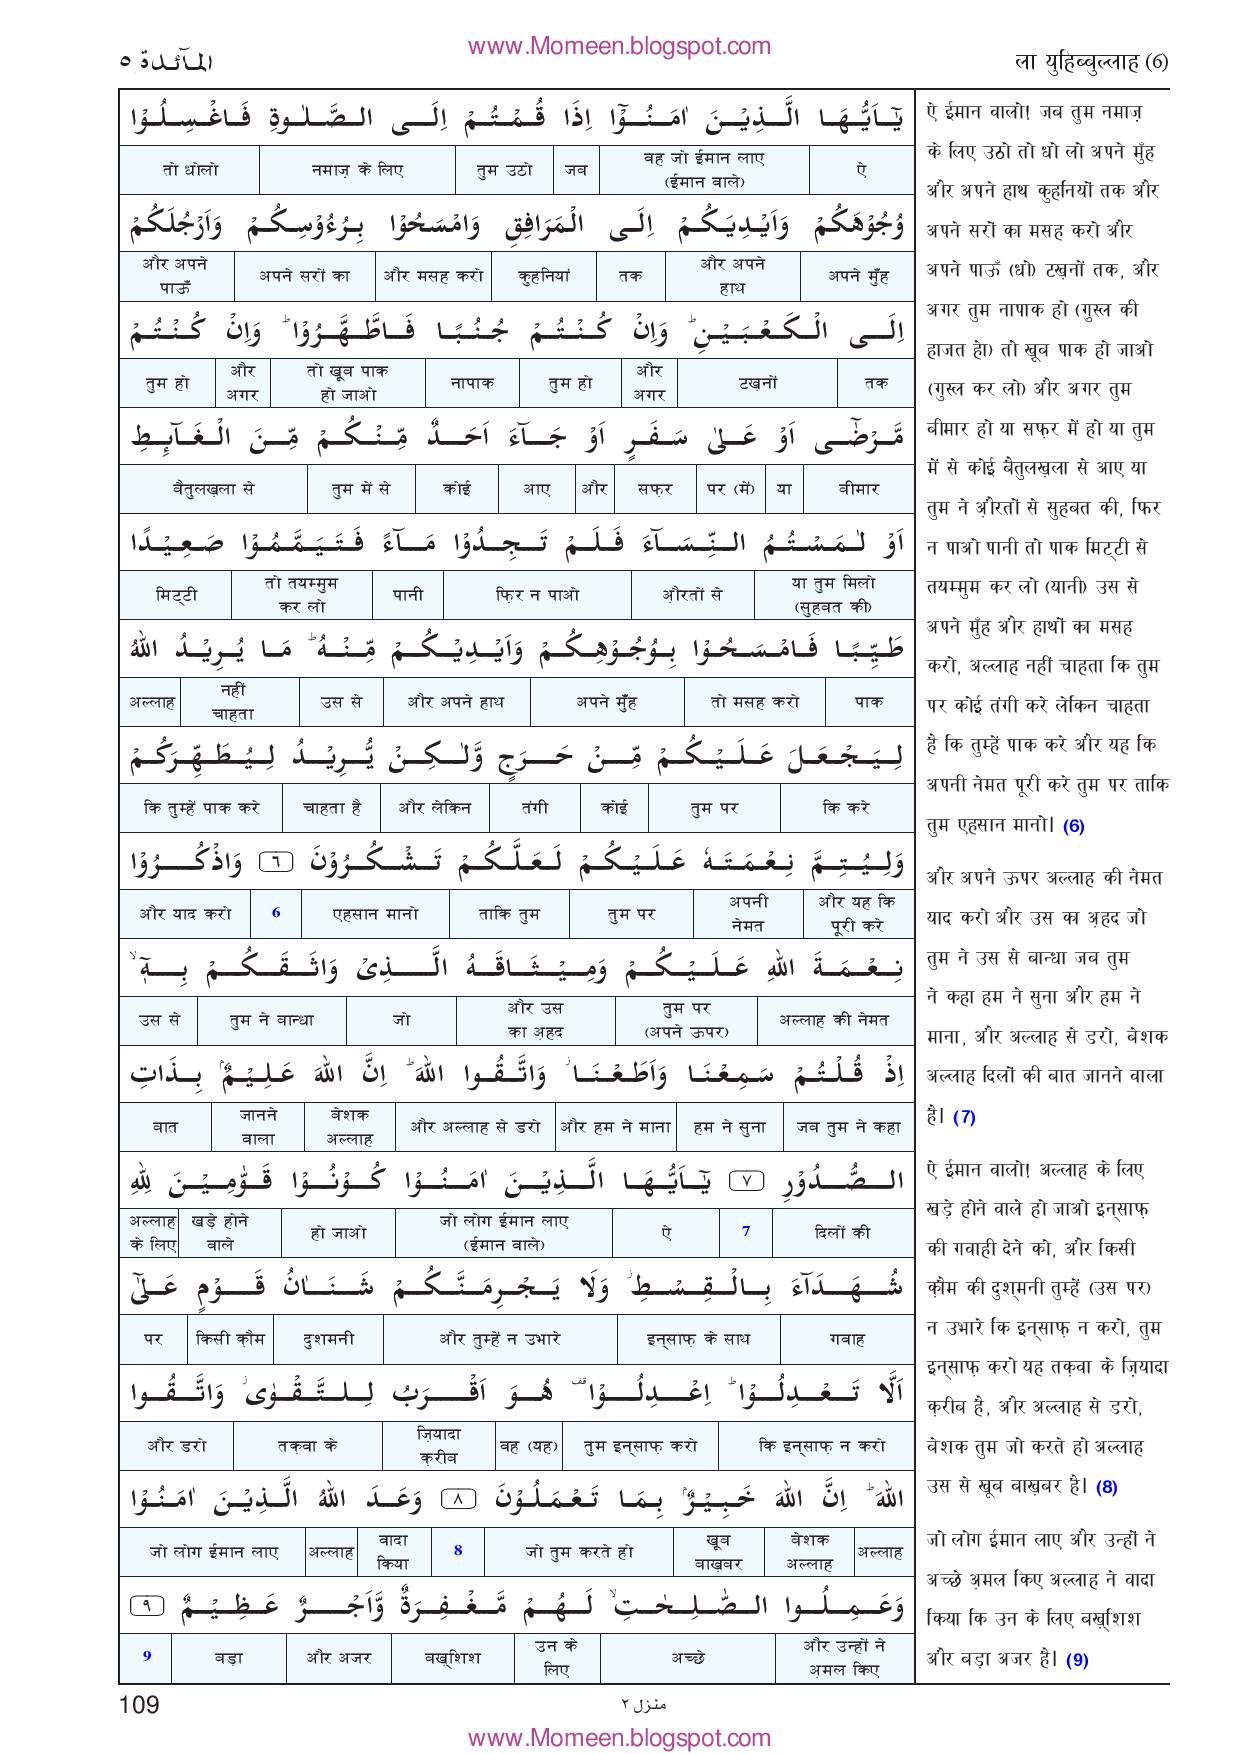 www.Momeen.blogspot.com
المآئدة ٥
ला युहिब्बुल्लाह (6)
يٰٓاَيُّهَا الَّذِيْنَ اٰمَنُوْٓا اِذَا قُمْتُمْ اِلَى الصَّلٰوةِ فَاغْسِلُوْا
ऐ वह जो ईमान लाए (ईमान वाले) जब तुम उठो नमाज़ के लिए तो धोलो
وُجُوْهَكُمْ وَاَيْدِيَكُمْ اِلَى الْمَرَافِقِ وَامْسَحُوْا بِرُءُوْسِكُمْ وَاَرْجُلَكُمْ
अपने मुँह और अपने हाथ तक कुहनियां और मसह करो अपने सरों का और अपने पाऊँ
اِلَى الْكَعْبَيْنِ ؕ وَاِنْ كُنْتُمْ جُنُبًا فَاطَّهَّرُوْا ؕ وَاِنْ كُنْتُمْ
तक टख़नों और अगर तुम हो नापाक तो खूब पाक हो जाओ और अगर तुम हो
مَّرْضٰٓى اَوْ عَلٰى سَفَرٍ اَوْ جَآءَ اَحَدٌ مِّنْكُمْ مِّنَ الْغَآىِٕطِ
बीमार या पर (में) सफ़र और आए कोई तुम में से बैतुलख़ला से
اَوْ لٰمَسْتُمُ النِّسَآءَ فَلَمْ تَجِدُوْا مَآءً فَتَيَمَّمُوْا صَعِيْدًا
या तुम मिलो (सुहबत की) औ़रतों से फिर न पाओ पानी तो तयम्मुम कर लो मिट्टी
طَيِّبًا فَامْسَحُوْا بِوُجُوْهِكُمْ وَاَيْدِيْكُمْ مِّنْهُ ؕ مَا يُرِيْدُ اللّٰهُ
पाक तो मसह करो अपने मुँह और अपने हाथ उस से नहीं चाहता अल्लाह
لِيَجْعَلَ عَلَيْكُمْ مِّنْ حَرَجٍ وَّلٰكِنْ يُّرِيْدُ لِيُطَهِّرَكُمْ
कि करे तुम पर कोई तंगी और लेकिन चाहता है कि तुम्हें पाक करे
وَلِيُتِمَّ نِعْمَتَهٗ عَلَيْكُمْ لَعَلَّكُمْ تَشْكُرُوْنَ ٦ وَاذْكُرُوْا
और यह कि पूरी करे अपनी नेमत तुम पर ताकि तुम एहसान मानो 6 और याद करो
نِعْمَةَ اللّٰهِ عَلَيْكُمْ وَمِيْثَاقَهُ الَّذِيْ وَاثَقَكُمْ بِهٖٓ ۙ
अल्लाह की नेमत तुम पर (अपने ऊपर) और उस का अ़हद जो तुम ने बान्धा उस से
اِذْ قُلْتُمْ سَمِعْنَا وَاَطَعْنَا ۫ وَاتَّقُوا اللّٰهَ ؕ اِنَّ اللّٰهَ عَلِيْمٌۢ بِذَاتِ
जब तुम ने कहा हम ने सुना और हम ने माना और अल्लाह से डरो बेशक अल्लाह जानने वाला बात
الصُّدُوْرِ ٧ يٰٓاَيُّهَا الَّذِيْنَ اٰمَنُوْا كُوْنُوْا قَوّٰمِيْنَ لِلّٰهِ
दिलों की 7 ऐ जो लोग ईमान लाए (ईमान वाले) हो जाओ खड़े होने वाले अल्लाह के लिए
شُهَدَآءَ بِالْقِسْطِ ۫ وَلَا يَجْرِمَنَّكُمْ شَنَاٰنُ قَوْمٍ عَلٰٓى
गवाह इन्साफ़ के साथ और तुम्हें न उभारे दुशमनी किसी क़ौम पर
اَلَّا تَعْدِلُوْا ؕ اِعْدِلُوْا ۥ هُوَ اَقْرَبُ لِلتَّقْوٰى ۫ وَاتَّقُوا
कि इन्साफ़ न करो तुम इन्साफ़ करो वह (यह) ज़ियादा क़रीब तक़वा के और डरो
اللّٰهَ ؕ اِنَّ اللّٰهَ خَبِيْرٌۢ بِمَا تَعْمَلُوْنَ ٨ وَعَدَ اللّٰهُ الَّذِيْنَ اٰمَنُوْا
अल्लाह बेशक अल्लाह खूब बाख़बर जो तुम करते हो 8 वादा किया अल्लाह जो लोग ईमान लाए
وَعَمِلُوا الصّٰلِحٰتِ ۙ لَهُمْ مَّغْفِرَةٌ وَّاَجْرٌ عَظِيْمٌ ٩
और उन्हों ने अ़मल किए अच्छे उन के लिए बख़्शिश और अजर बड़ा 9
ऐ ईमान वालो! जब तुम नमाज़
के लिए उठो तो धो लो अपने मुँह
और अपने हाथ कुहनियों तक और
अपने सरों का मसह करो और
अपने पाऊँ (धो) टख़नों तक, और
अगर तुम नापाक हो (गुस्ल की
हाजत हो) तो खूब पाक हो जाओ
(गुस्ल कर लो) और अगर तुम
बीमार हो या सफ़र में हो या तुम
में से कोई बैतुलख़ला से आए या
तुम ने औ़रतों से सुहबत की, फिर
न पाओ पानी तो पाक मिट्टी से
तयम्मुम कर लो (यानी) उस से
अपने मुँह और हाथों का मसह
करो, अल्लाह नहीं चाहता कि तुम
पर कोई तंगी करे लेकिन चाहता
है कि तुम्हें पाक करे और यह कि
अपनी नेमत पूरी करे तुम पर ताकि
तुम एहसान मानो। (6)
और अपने ऊपर अल्लाह की नेमत
याद करो और उस का अ़हद जो
तुम ने उस से बान्धा जब तुम
ने कहा हम ने सुना और हम ने
माना, और अल्लाह से डरो, बेशक
अल्लाह दिलों की बात जानने वाला
है। (7)
ऐ ईमान वालो! अल्लाह के लिए
खड़े होने वाले हो जाओ इन्साफ़
की गवाही देने को, और किसी
क़ौम की दुश्मनी तुम्हें (उस पर)
न उभारे कि इन्साफ़ न करो, तुम
इन्साफ़ करो यह तक़वा के ज़ियादा
क़रीब है, और अल्लाह से डरो,
बेशक तुम जो करते हो अल्लाह
उस से खूब बाख़बर है। (8)
जो लोग ईमान लाए और उन्हों ने
अच्छे अ़मल किए अल्लाह ने वादा
किया कि उन के लिए बख़्शिश
और बड़ा अजर है। (9)
109
منزل ٢
www.Momeen.blogspot.com